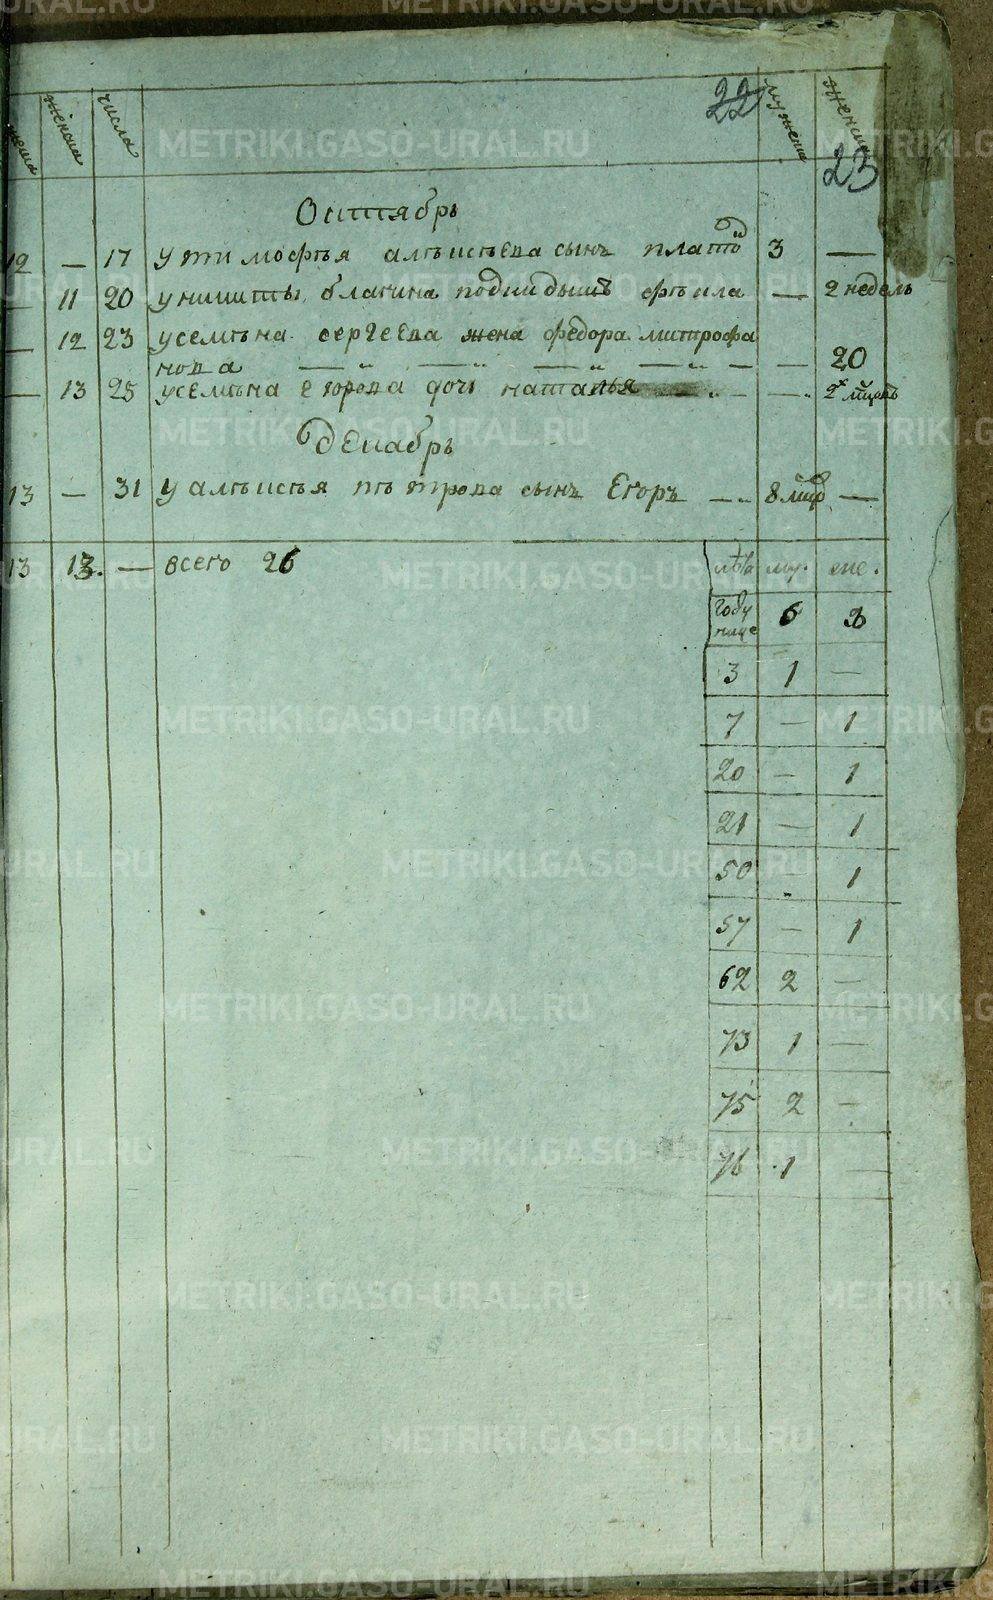 METRIKI.GASO-URAL.RU
женска числа 22 мужска женска
23
Октябрь
12 — 17 у тимофѣя алѣксѣева сынъ платонъ 3 —
— 11 20 у никиты благина подкидышъ — 2 недель
— 12 23 у семѣна сергеева жена федора митрофа
нова — 20
— 13 25 у семѣна егорова дочь наталья —
Декабрь
13 — 31 у алѣксѣя пѣтрова сынъ Егоръ — 8 —
13 13. — всего 26
лѣта му. же.
году ниже 6 8
3 1 —
7 — 1
20 — 1
21 — 1
50 — 1
57 — 1
62 2 —
73 1 —
75 2 —
76 1 —